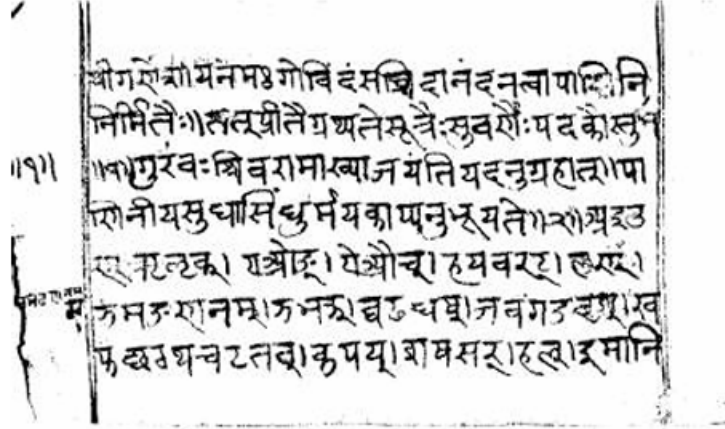 श्रीगणेशायनमः गोविदंसच्चिदानंदनत्वापाणिनि
निर्मितैः॥तत्प्रीतैग्रथ्यतेसूत्रैःसुवर्णैःपदकौस्तुभ
॥१॥
॥१॥गुरवःशिवरामाख्याजयंतियदनुग्रहात्॥पा
णिनीयसुधासिंधुर्मयकाप्यनुभूयते॥२॥अइउ
ण् ऋऌक्। एओङ्। ऐऔच्। हयवरट्। लण्।
ञमङणनम्। झभञ्। घढधष्। जबगडदश्। ख
फछठथचटतव्। कपय्। शषसर्। हल्। इमानि